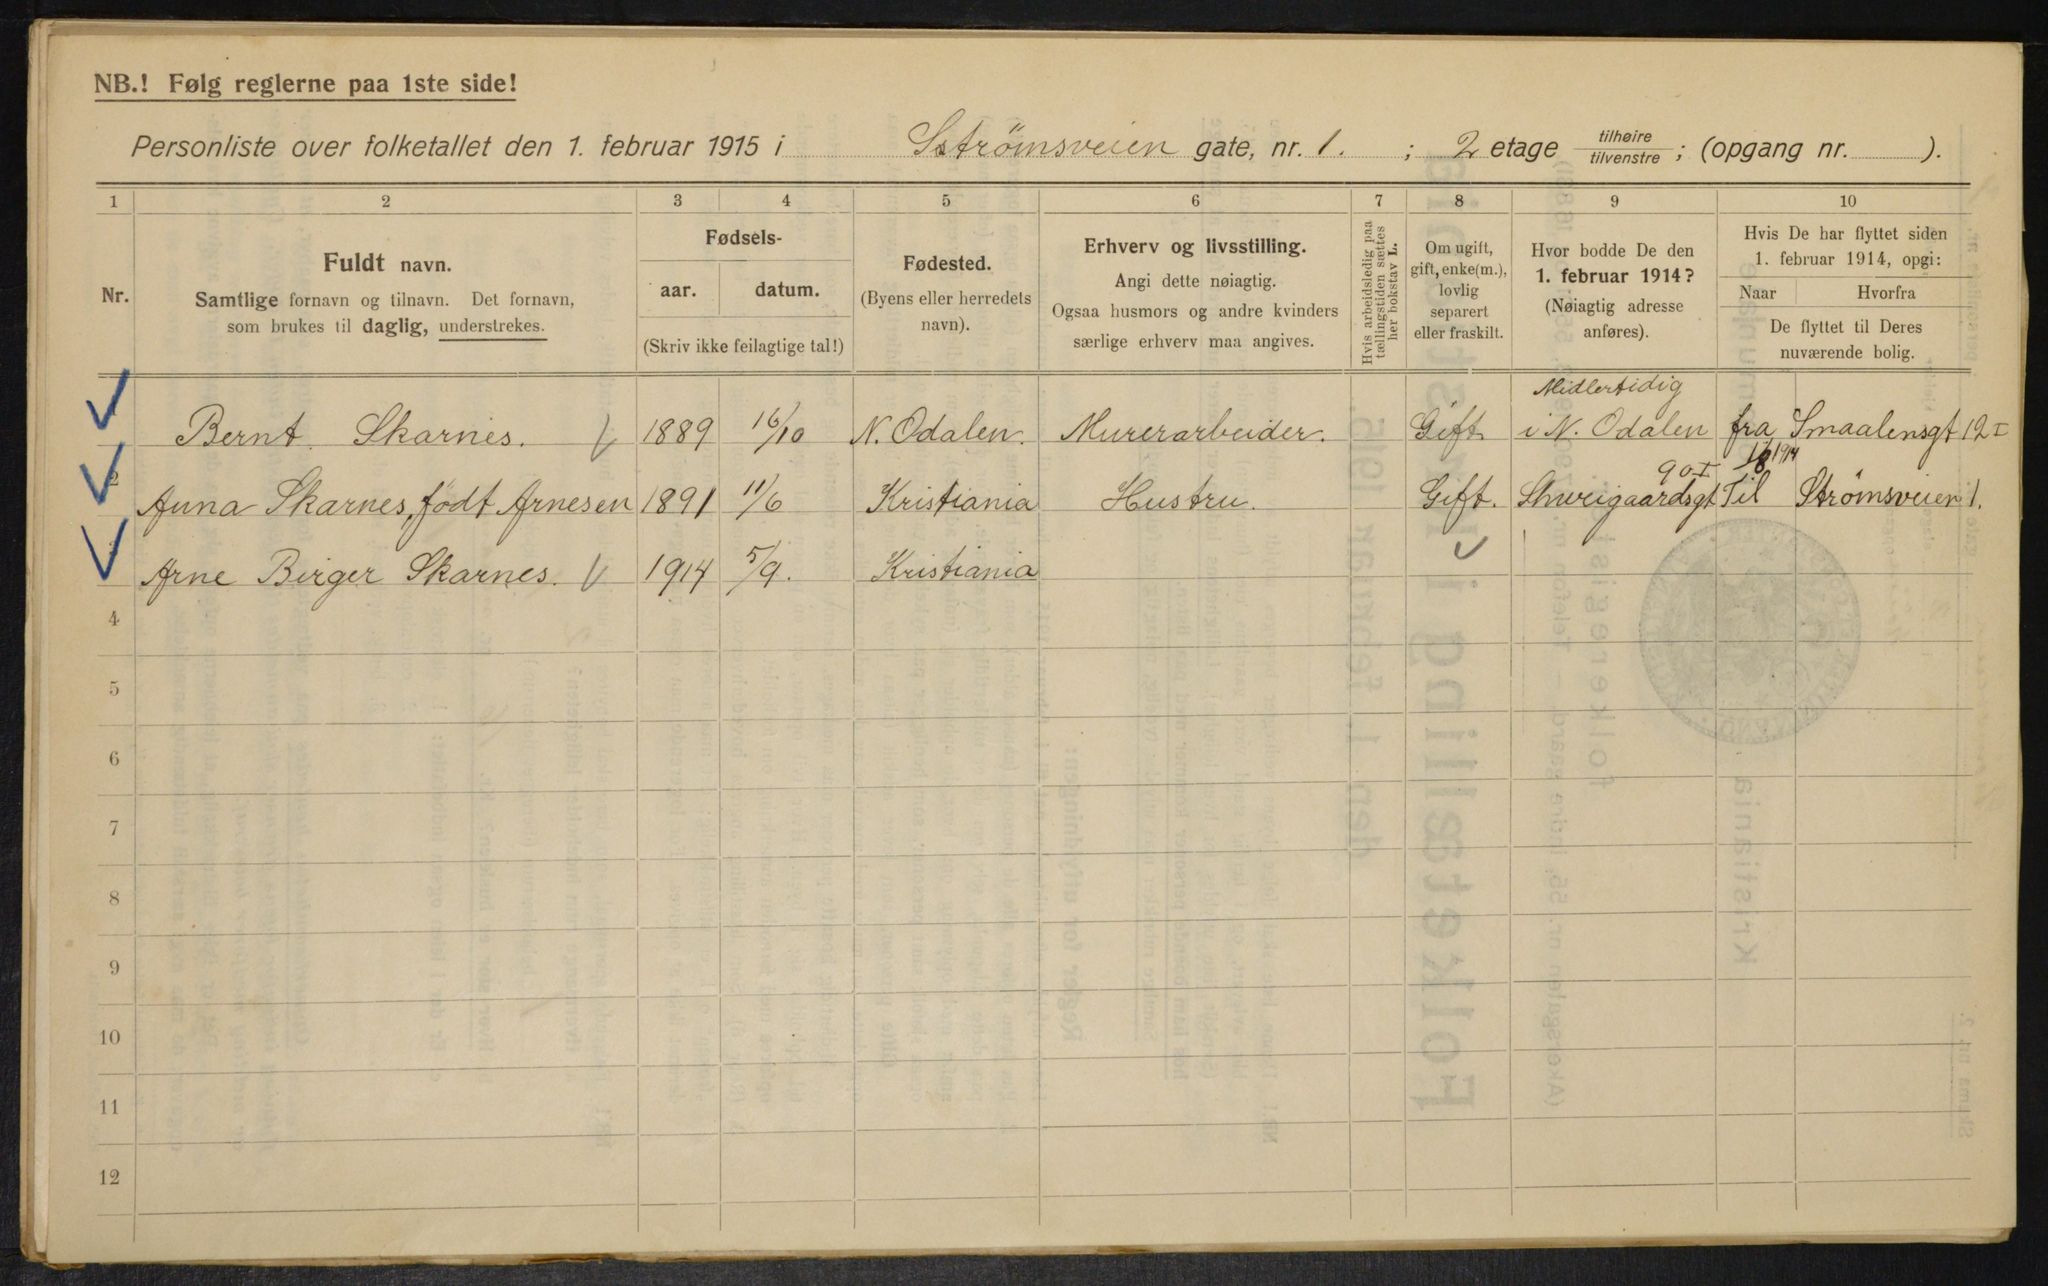 NB.! Følg reglerne paa 1ste side!
Personliste over folketallet den 1. februar 1915 i Sstrømsveien gate, nr. 1. ; 2 etage tilhøire / tilvenstre ; (opgang nr. ).
1 2 3 4 5 6 7 8 9 10
Nr.
Fuldt navn.
Samtlige fornavn og tilnavn. Det fornavn,
som brukes til daglig, understrekes.
Fødsels-
aar. datum.
(Skriv ikke feilagtige tal!)
Fødested.
(Byens eller herredets
navn).
Erhverv og livsstilling.
Angi dette nøiagtig.
Ogsaa husmors og andre kvinders
særlige erhverv maa angives.
Hvis arbeidsledig paa
tællingstiden sættes
her bokstav L.
Om ugift,
gift, enke(m.),
lovlig
separert
eller fraskilt.
Hvor bodde De den
1. februar 1914?
(Nøiagtig adresse
anføres).
Hvis De har flyttet siden
1. februar 1914, opgi:
Naar Hvorfra
De flyttet til Deres
nuværende bolig.
Midlertidig
Bernt Skarnes. 1889 16/10 N. Odalen. Murerarbeider. Gift i N. Odalen fra Smaalensgt 12 I
90 I 1914
2 Anna Skarnes, født Arnesen 1891 11/6 Kristiania Hustru. Gift. Shweigaardsgt Til Strömsveien 1.
Arne Birger Skarnes. 1914 5/9. Kristiania
4
5
6
7
8
9
10
11
12